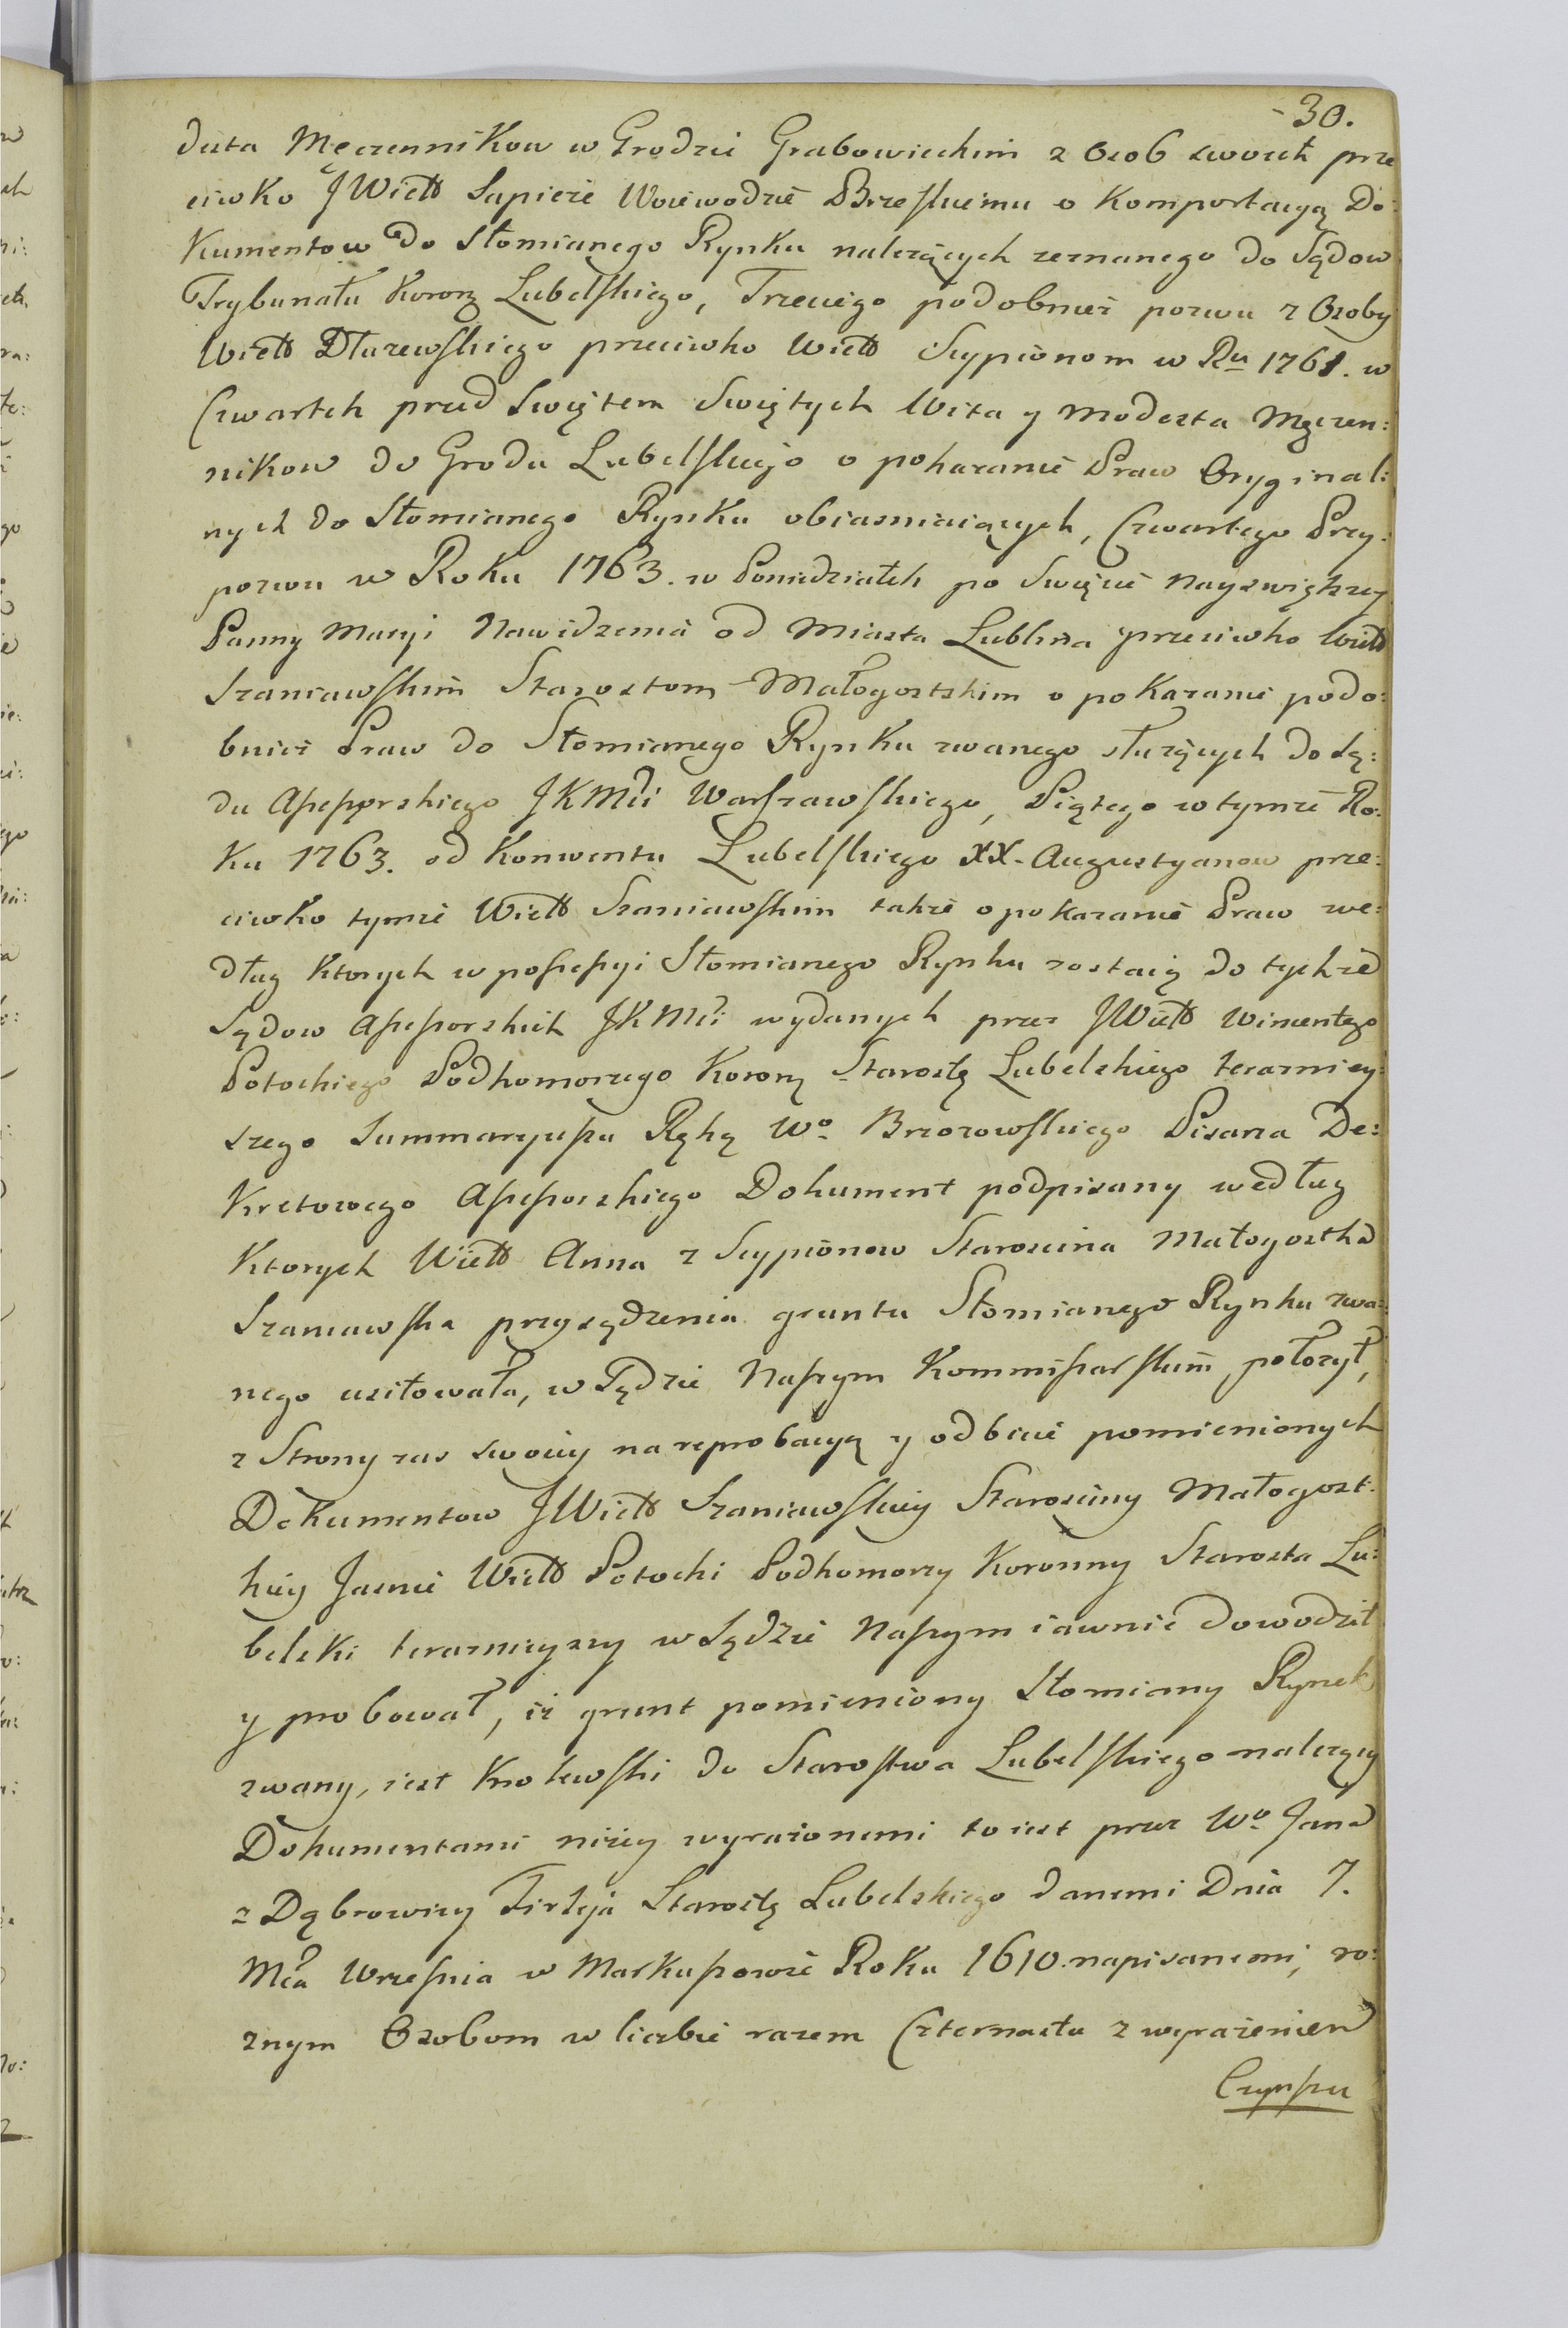 30.
desta Męczennikow w Grodzie Grabowieckim z Osob swoich prze
ciwko JWielb Sapieże Woiewodzie Brzeskiemu o Komportacyą Do:
kumentow do Słomianego Rynku należących zeznanego do Sądow
Trybunału Koron Lubelskiego, Trzeciego podobnież pozwu z Osoby
Wielb Dłużewskiego przeciwko Wielb Scypionom w Ru 1761. w
Czwartek przed Swiętem Swiętych Wita y Modesta Męczen:
nikow do Grodu Lubelskiego o pokazanie Praw Oryginal:
nych do Słomianego Rynku obiasniaiących, Czwartego Przy:
pozwu w Roku 1763. w Poniedziałek po Swięcie Nayswiętszey
Panny Maryi Nawidzenia od Miasta Lublina przeciwko Wielb
Szaniawskim Starostom Małogostskim o pokazanie podo:
bnież Praw do Słomianego Rynku zwanego służących do Są:
du Assessorskiego JKMci Warszawskiego, Piątego w tymże Ro:
ku 1763. od Konwentu Lubelskiego XX. Augustyanow prze:
ciwko tymże Wielb Szaniawskim także o pokazanie Praw we:
dług ktorych w possessyi Słomianego Rynku zostaią do tychże
Sądow Assessorskich JKMci wydanych przez JWielb Wincentego
Potockiego Podkomorzego Koron Starostę Lubelskiego terazniey:
szego Summaryuszu Ręką Wo Brzozowskiego Pisarza De:
kretowego Assessorskiego Dokument podpisany według
ktorych Wielb Anna z Scypionow Starościna Małogostka
Szaniawska przysądzenia gruntu Słomianego Rynku zwa:
nego usiłowała, w Sądzie Naszym Kommissarskim położył,
z Strony zas swoiey na reprobacyą y odbicie pomienionych
Dokumentow JWielb Szaniawskiey Starosciny Małogost:
kiey Jasnie Wielb Potocki Podkomorzy Koronny Starosta Lu:
belski teraznieyszy w Sądzie Naszym iawnie dowodził
y probował, iż grunt pomieniony Słomiany Rynek
zwany, iest Krolewski do Starostwa Lubelskiego należący
Dokumentami niżey wyrażonemi to iest przez Wo Jana
z Dąbrowicy Firleja Starostę Lubelskiego danemi Dnia 7.
Mca Wrzesnia w Markuszowie Roku 1610. napisanemi, ro:
znym Osobom w liczbie razem Czternastu z wyrażeniem
Czynszu